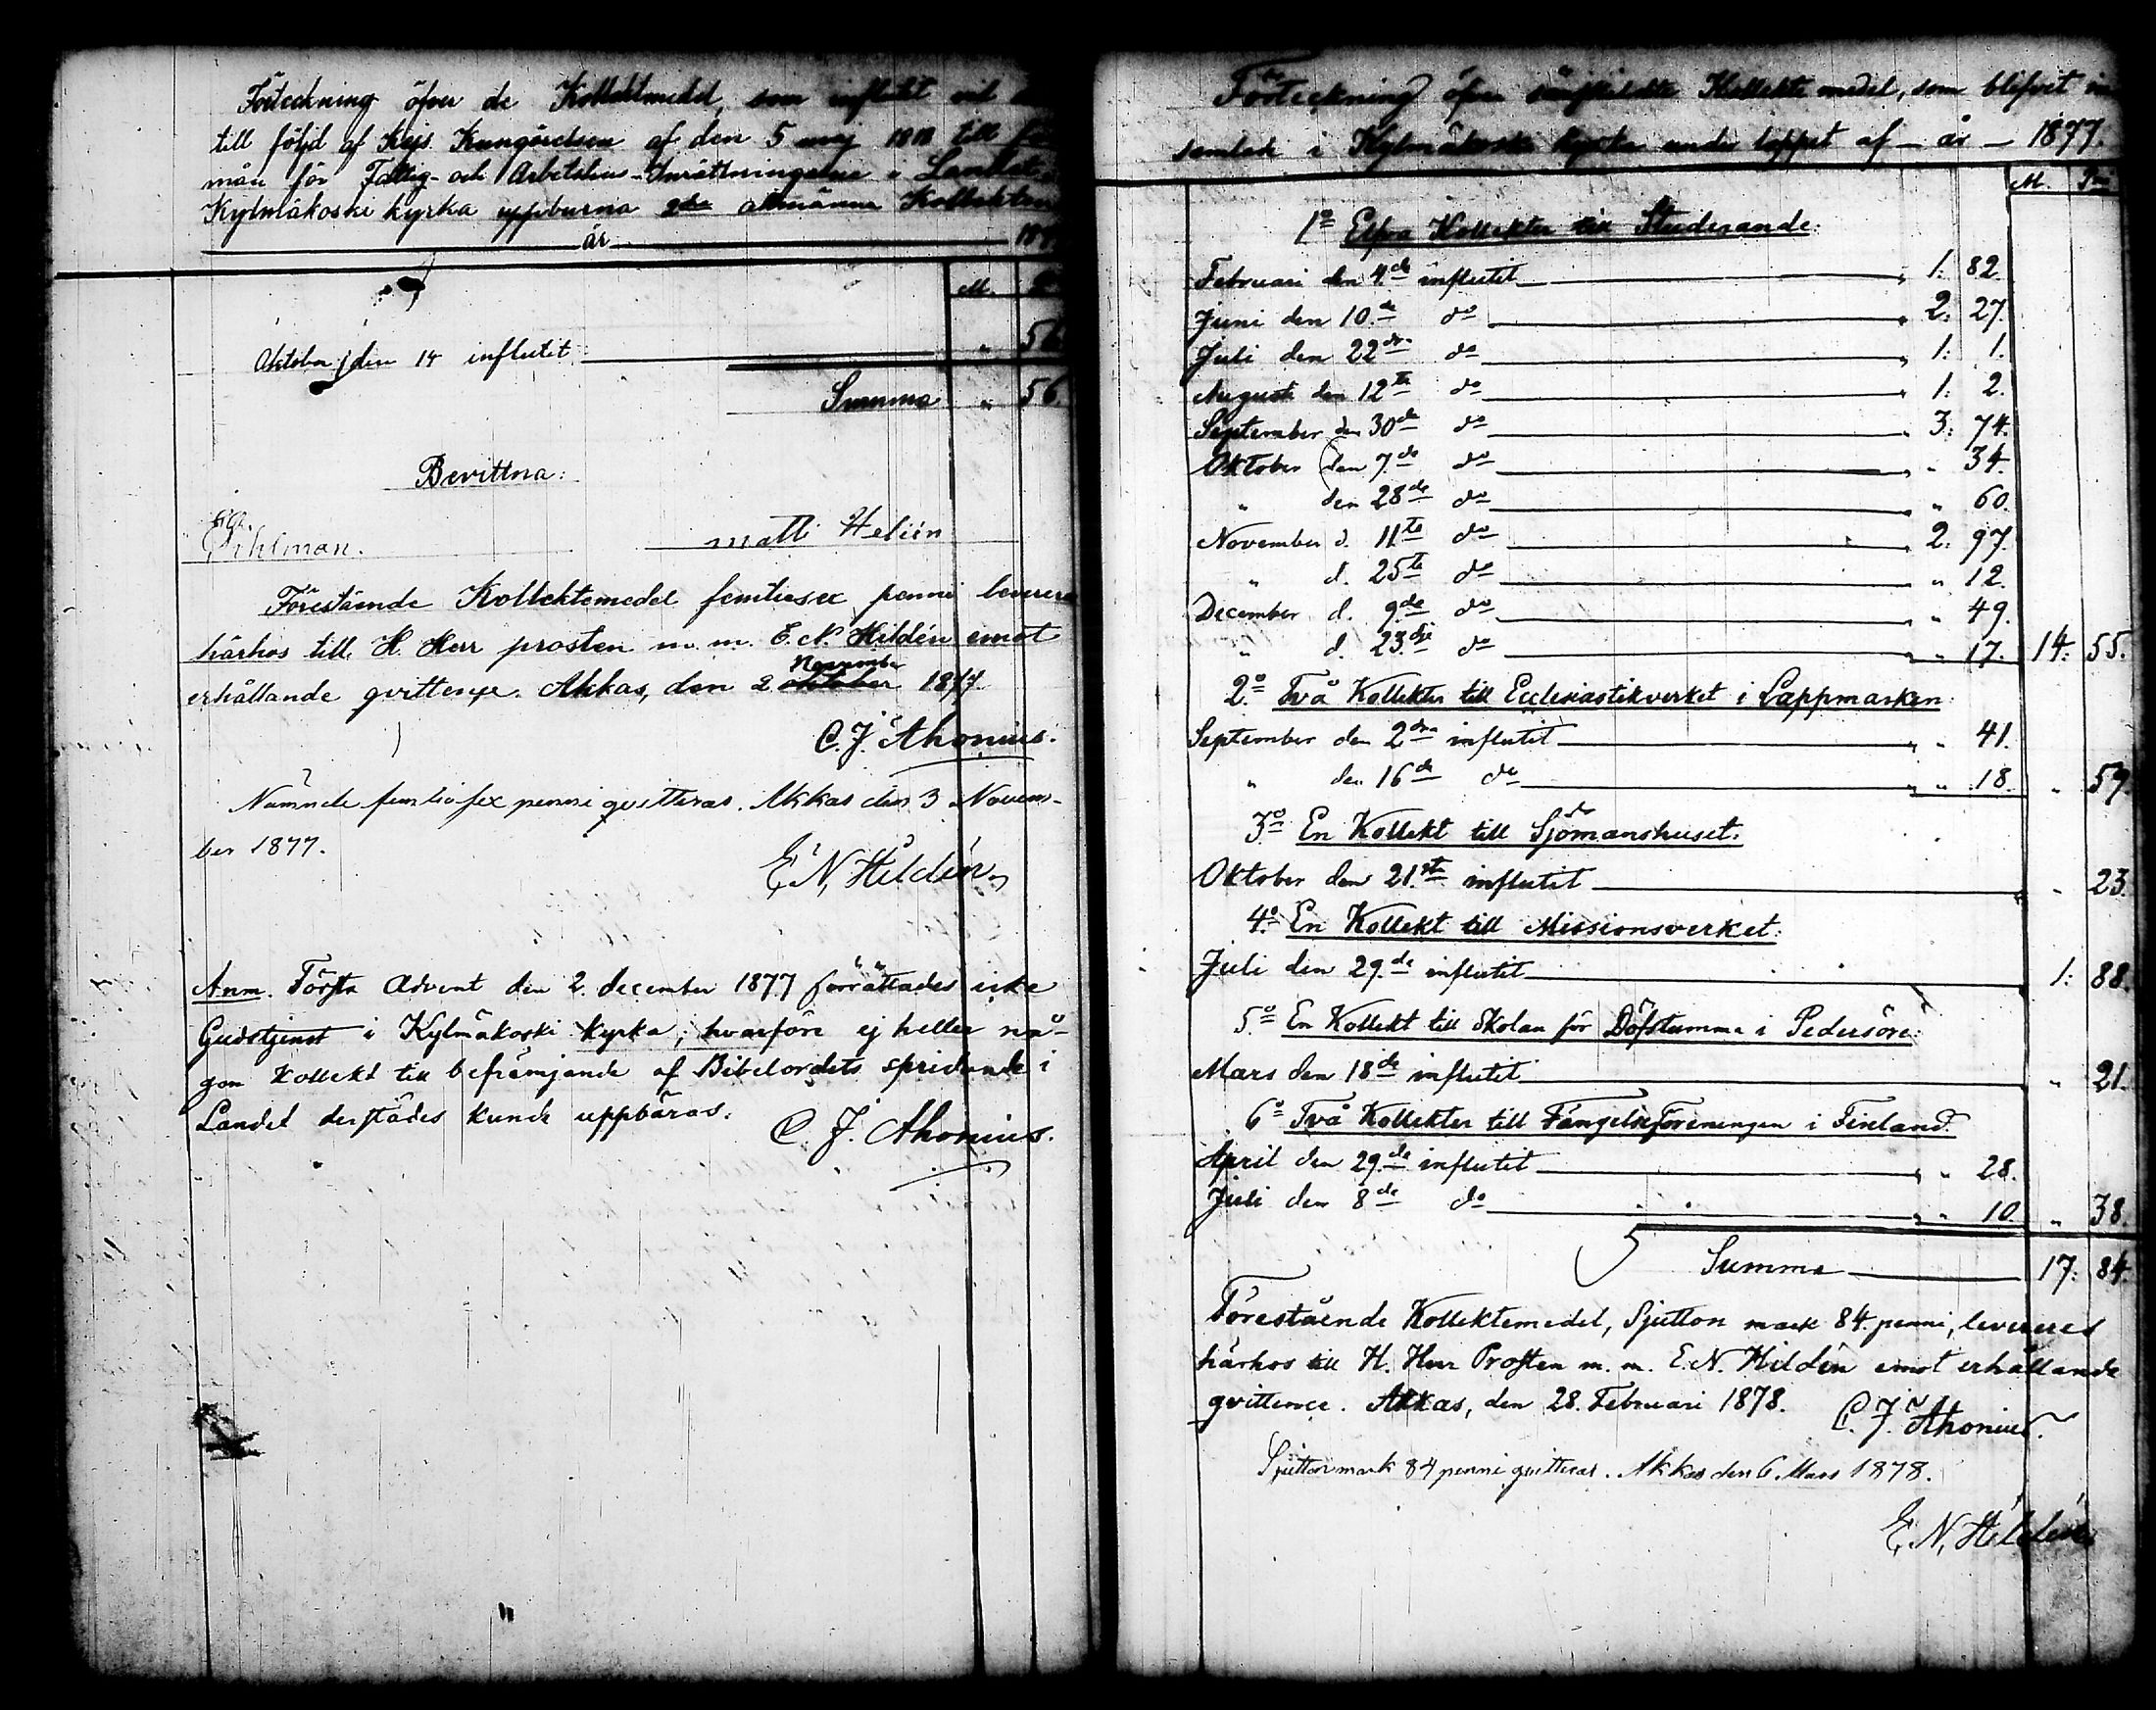 Förteckning öfver de Kollektmedel, som influtit vid
till följd af Kejs. Kungörelsen af den 5 maj 1818 till
mån för Fattig- och Arbetshus-Inrättningarna i Landet
Kylmäkoski kyrka uppburna 2dra allmänna Kollekten
år
M.
Oktober den 14 influtit " 56
Summa " 56.
Bevittna:
Pihlman. matti Helién
Förestående Kollektemedel femtiosex penni leverera
härhos till H. Herr prosten m. m. E. N. Hildén emot
November
erhållande qvittense. Akkas, den 2 oktober 1877.
C. J. Ahonius.
Nämnde femtiosex penni qvitteras. Akkas den 3 Novem-
ber 1877.
E. N. Hildén
Anm. Första Advent den 2. december 1877 förrättades icke
Gudstjenst i Kylmäkoski kyrka; hvarföre ej heller nå-
gon Kollekt till befrämjande af Bibelordets spridande i
Landet derstädes kunde uppbäras.
C. J. Ahonius.
Förteckning öfver särskilda Kollekte medel, som blifvit in
samlade i Kylmäkoski kyrka under loppet af – år – 1877.
M. Pni
1o Elfva Kollekter till Studerande:
Februari den 4de influtit " 1: 82.
Juni den 10de do " 2: 27.
Juli den 22dra do " 1: 1.
Augusti den 12te do " 1: 2.
September den 30de do " 3: 74.
Oktober den 7de do " " 34.
" den 28de do " " 60.
November d. 11te do " 2: 97.
" d. 25te do " " 12.
December d. 9de do " " 49.
" d. 23dje do " " 17. 14: 55.
2o Två Kollekter till Ecclesiastikverket i Lappmarken:
September den 2dra influtit " " 41.
" den 16de do " " 18. " 59.
3o En Kollekt till Sjömanshuset:
Oktober den 21sta influtit " 23.
4o En Kollekt till Missionsverket:
Juli den 29de influtit 1: 88.
5o En Kollekt till Skolan för Döfstumma i Pedersöre:
Mars den 18de influtit " 21.
6o Två Kollekter till Fängelseföreningen i Finland:
April den 29de influtit " " 28.
Juli den 8de do " " 10. " 38.
Summa 17: 84.
Förestående Kollektemedel, Sjutton mark 84. penni, levereras
härhos till H. Herr Prosten m. m. E. N. Hildén emot erhållande
qvittence. Akkas, den 28. Februari 1878. C. J. Ahonius.
Sjutton mark 84 penni qvitteras. Akkas den 6. Mars 1878.
E. N. Hildén